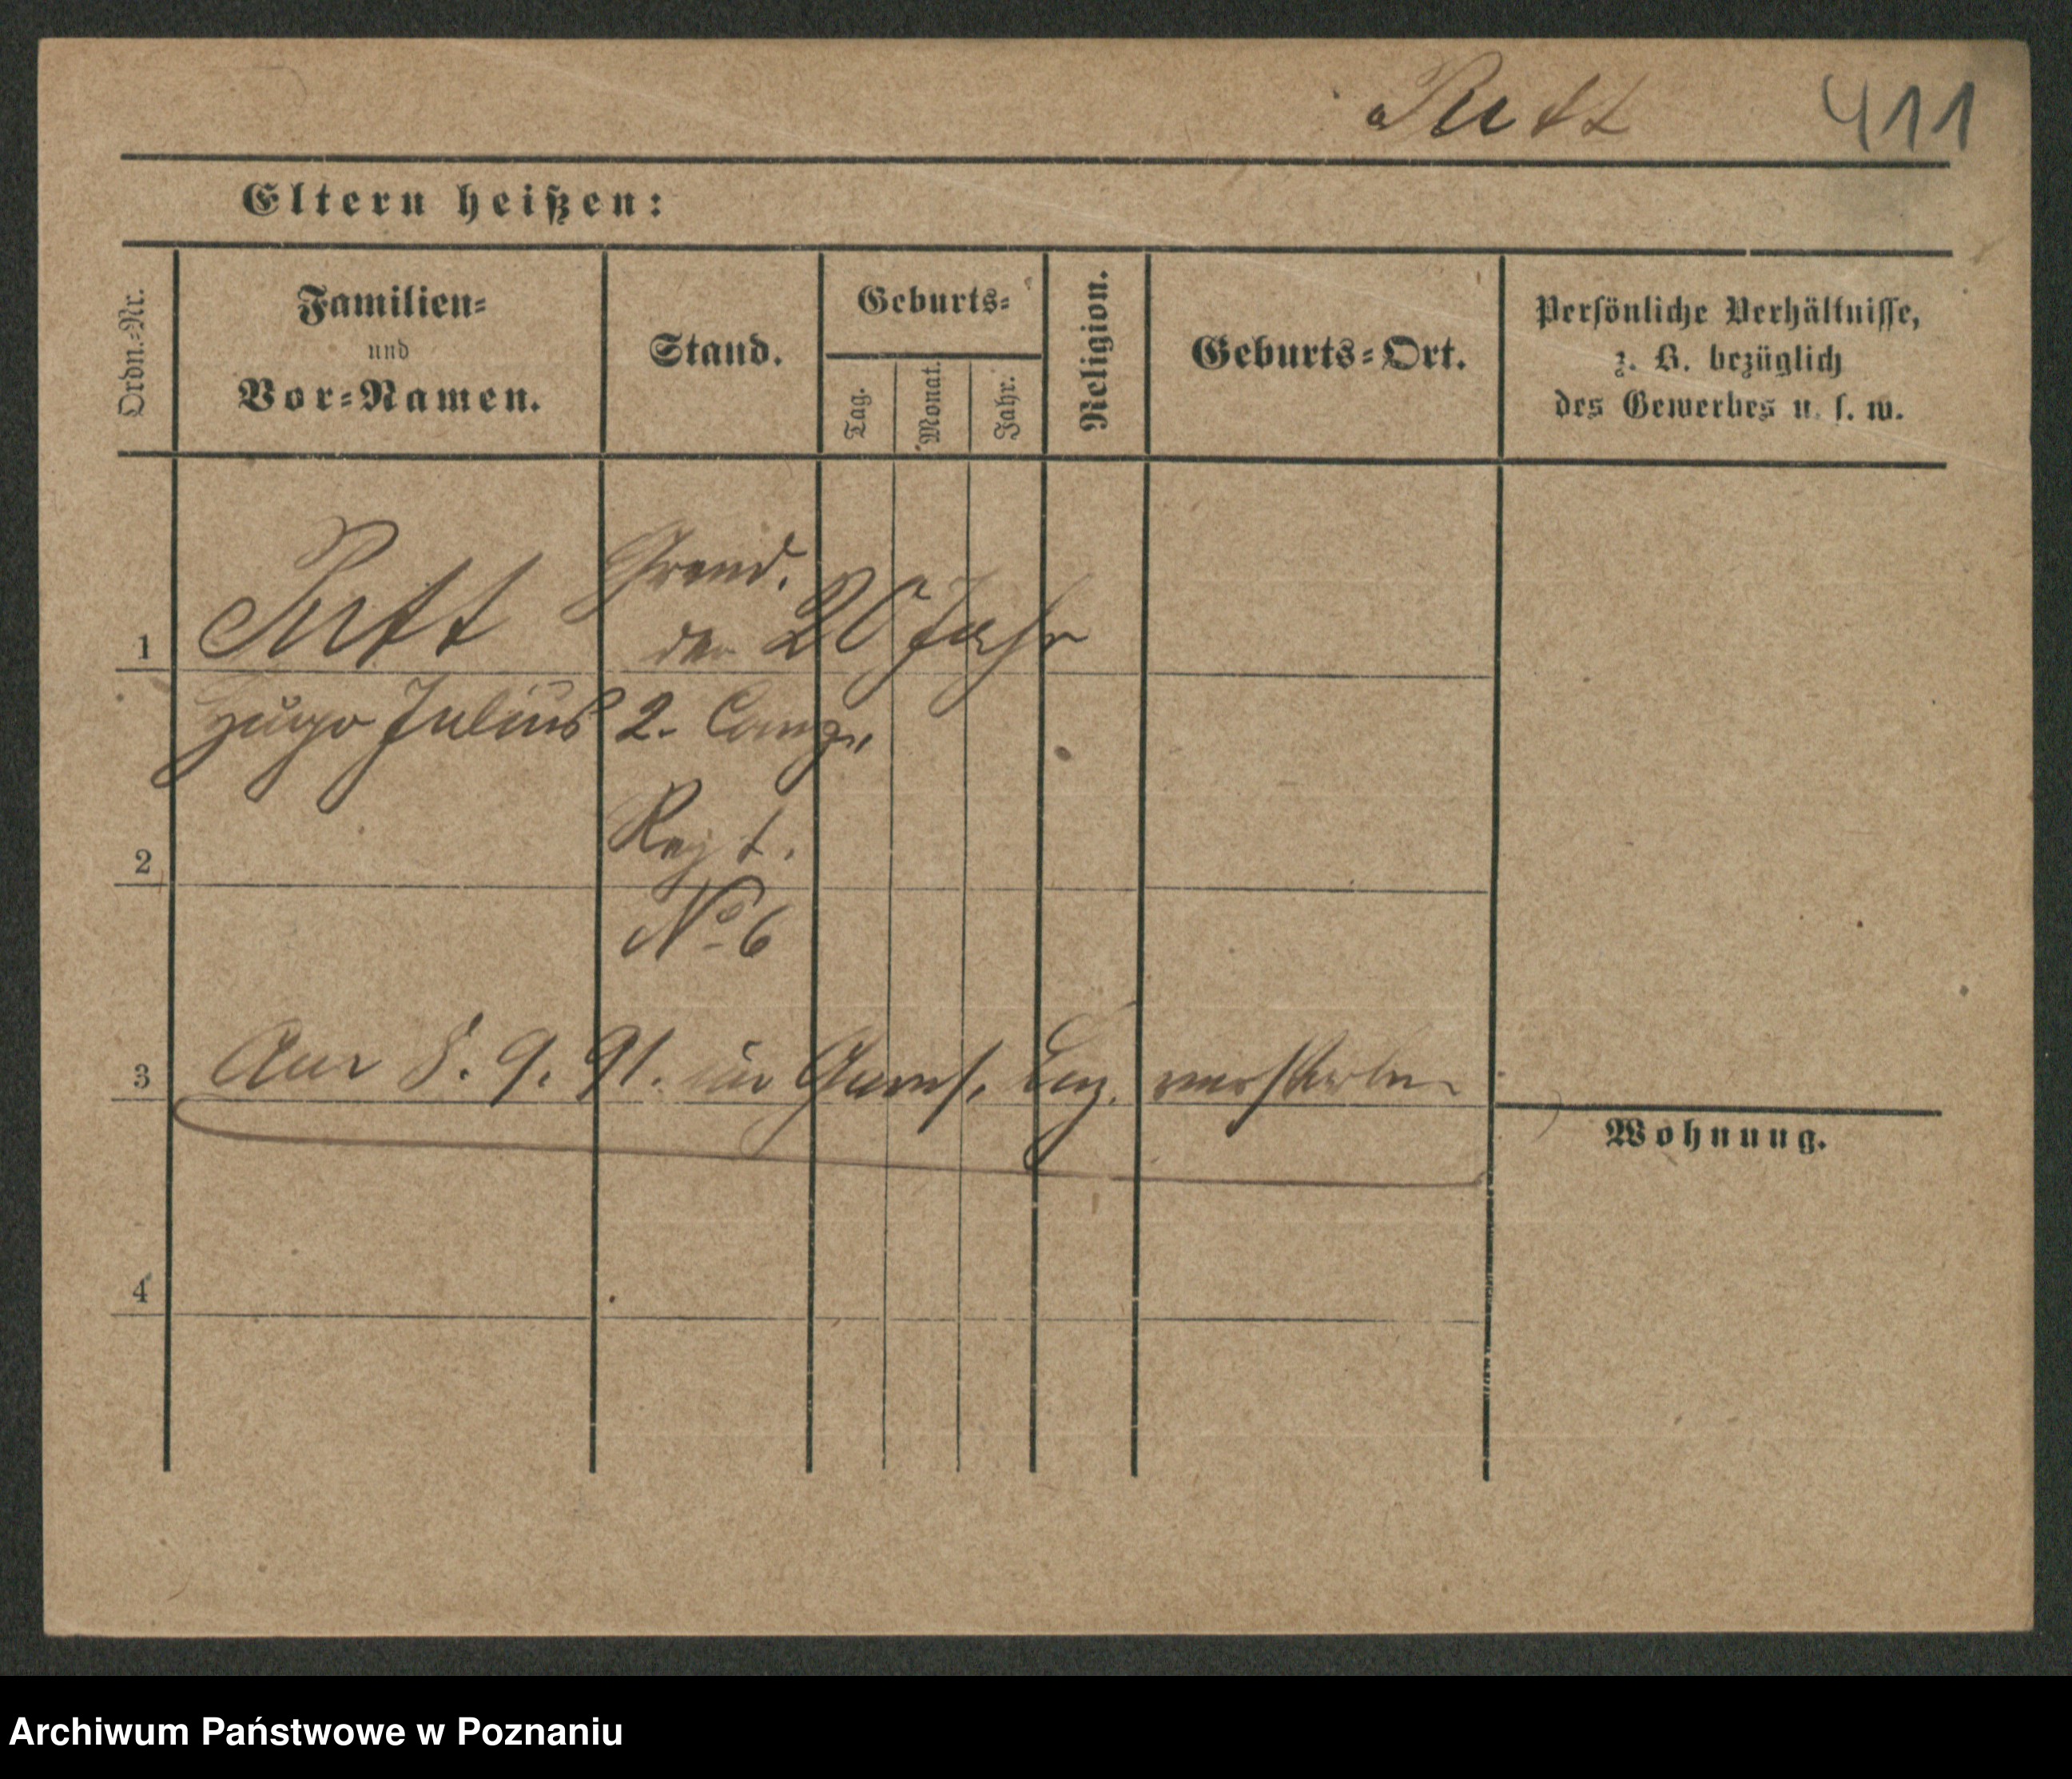 Rutt 411
Eltern heißen:
Ordn.-Nr.
Familien-
und
Vor-Namen.
Stand.
Geburts-
Tag.
Monat.
Jahr.
Religion.
Geburts-Ort.
Persönliche Verhältnisse,
z. B. bezüglich
des Gewerbes u. s. w.
1 Rutt Grend. 20 Jahr
der
Hugo Julius 2. Comp.
2 Regt.
No 6
3 Am 8. 9. 91. im Garns. Laz. verstorben
Wohnung.
4
Archiwum Państwowe w Poznaniu